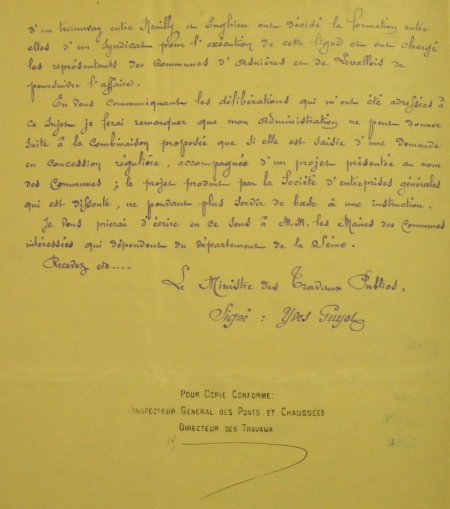 d'un tramway entre Neuilly et Enghien ont décidé la formation entre
elles d'un syndicat pour l'exécution de cette ligne et ont chargé
les représentants des Communes d'Asnières et de Levallois de
poursuivre l'affaire.
En vous communiquant les délibérations qui m'ont été adressées à
ce sujet je ferai remarquer que mon Administration ne peut donner
suite à la Combinaison proposée que si elle est saisie d'une demande
en concession régulière, accompagnée d'un projet présentée au nom
des Communes ; le projet produit par la Société d'entreprises générales
qui est dissoute, ne pouvant plus servir de base à une instruction.
Je vous prierai d'écrire en ce sens à M.M. les Maires des Communes
intéressées qui dépendent du département de la Seine.
Recevez etc....
Le Ministre des Travaux Publics,
Signé : Yves Guyot
POUR COPIE CONFORME:
INSPECTEUR GENERAL DES PONTS ET CHAUSSÉES
DIRECTEUR DES TRAVAUX